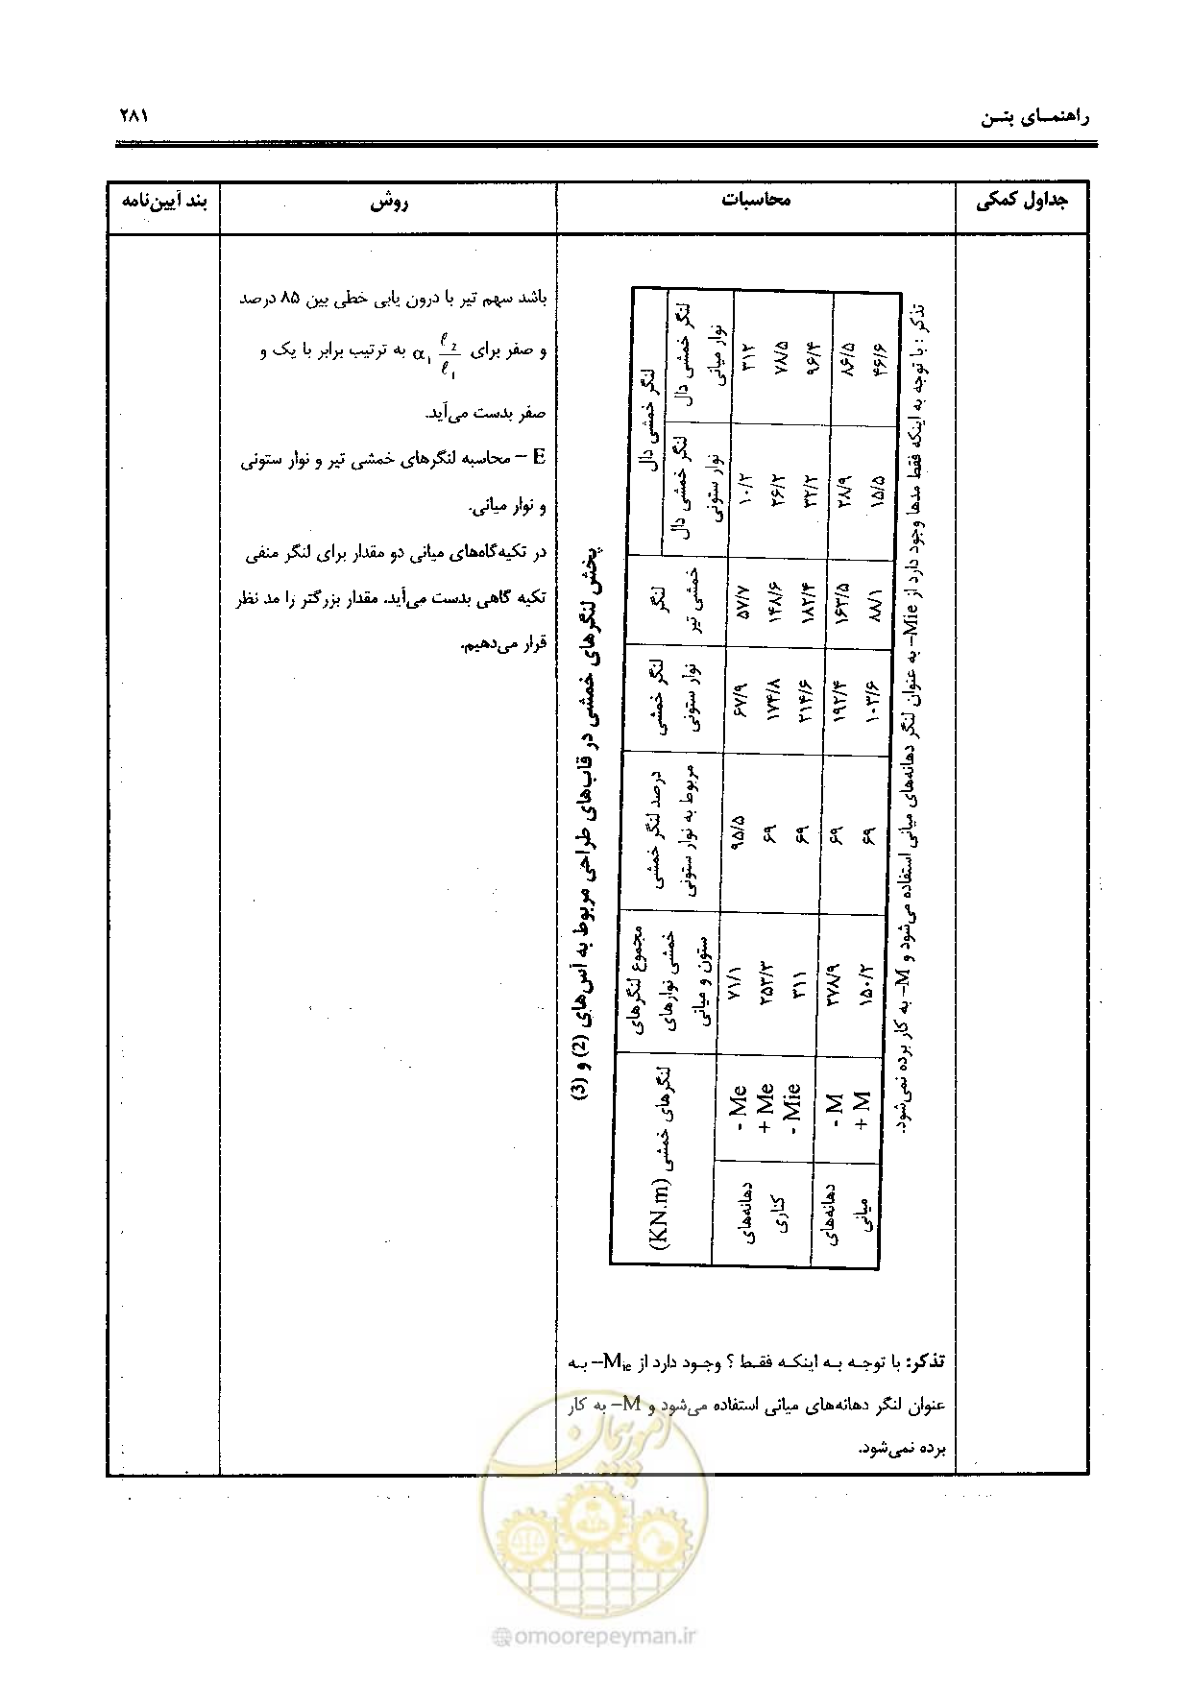 راهنمـای بتـن
۲۸۱
جداول کمکی | محاسبات | روش | بند آیین‌نامه
پخش لنگرهای خمشی در قاب‌های طراحی مربوط به آس‌های (2) و (3)
لنگرهای خمشی (KN.m) | مجموع لنگرهای خمشی نوارهای ستون و میانی | درصد لنگر خمشی مربوط به نوار ستونی | لنگر خمشی نوار ستونی | لنگر خمشی تیر | لنگر خمشی دال
لنگر خمشی دال نوار ستونی | لنگر خمشی دال نوار میانی
دهانه‌های کناری | - Me | ۷۱/۱ | ۹۵/۵ | ۶۷/۹ | ۵۷/۷ | ۱۰/۲ | ۳۱۲
+ Me | ۲۵۳/۳ | ۶۹ | ۱۷۴/۸ | ۱۴۸/۶ | ۲۶/۲ | ۷۸/۵
- Mie | ۳۱۱ | ۶۹ | ۲۱۴/۶ | ۱۸۲/۴ | ۳۲/۲ | ۹۶/۴
دهانه‌های میانی | - M | ۲۷۸/۹ | ۶۹ | ۱۹۲/۴ | ۱۶۳/۵ | ۲۸/۹ | ۸۶/۵
+ M | ۱۵۰/۲ | ۶۹ | ۱۰۳/۶ | ۸۸/۱ | ۱۵/۵ | ۴۶/۶
تذکر : با توجه به اینکه فقط مدها وجود دارد از Mie- به عنوان لنگر دهانه‌های میانی استفاده می‌شود و M- به کار برده نمی‌شود.
تذکر: با توجـه بـه اینکـه فقـط ؟ وجـود دارد از Mie– بـه
عنوان لنگر دهانه‌های میانی استفاده می‌شود و M– به کار
برده نمی‌شود.
باشد سهم تیر با درون یابی خطی بین ۸۵ درصد
و صفر برای α₁ ℓ₂/ℓ₁ به ترتیب برابر با یک و
صفر بدست می‌آید.
E – محاسبه لنگرهای خمشی تیر و نوار ستونی
و نوار میانی.
در تکیه‌گاه‌های میانی دو مقدار برای لنگر منفی
تکیه گاهی بدست می‌آید. مقدار بزرگتر را مد نظر
قرار می‌دهیم.
امور پیمان
@omoorepeyman.ir